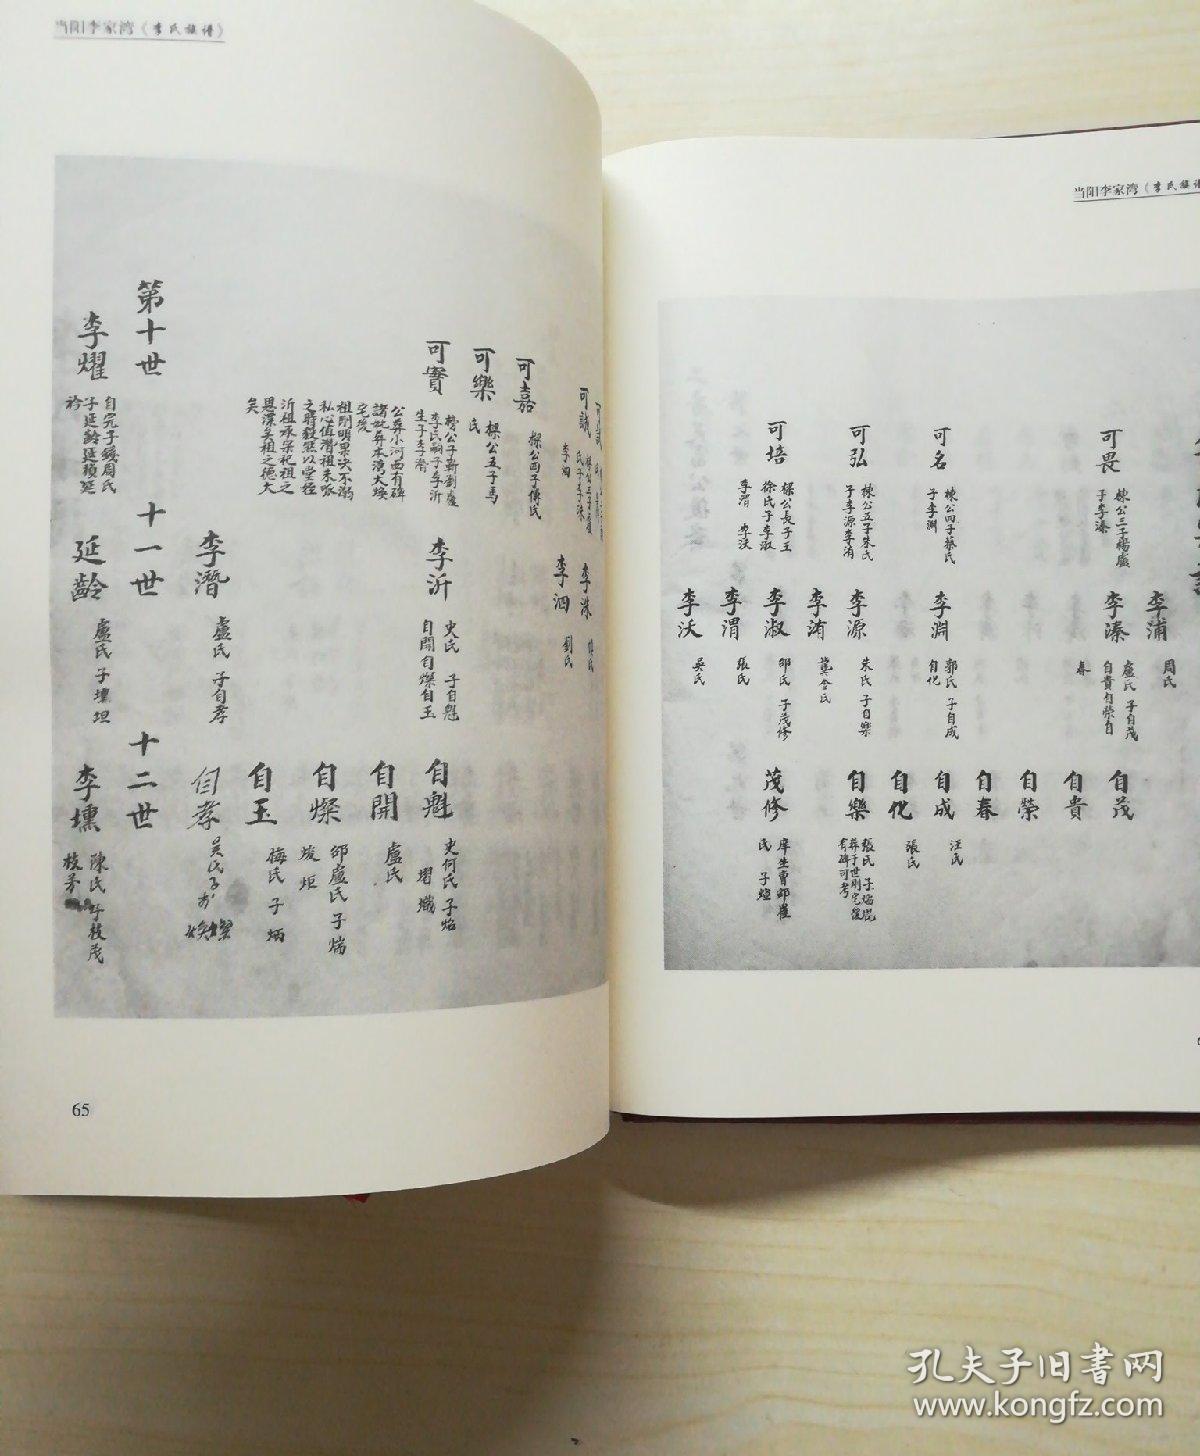 当阳李家湾《李氏族谱》
可實
榜公子靳劉盧
李氏嗣子李沂
生子李潛
公葬小河西有碑
諸故葬本灣大塽
宅後
祖剛明果决不溺
私心值潛祖未承
之時毅然以堂姪
沂祖承宗祀祖之
恩深矣祖之德大
矣
可樂
櫻公五子馬
氏
可嘉
櫻公四子傅氏
可誠
李泗
李洙
李泗
劉氏
李沂
史氏 子自魁
自開自燦自玉
李潛
盧氏 子自孝
自魁
史何氏 子焰
熠熾
自開
盧氏
自燦
邵盧氏 子煓
焌炬
自玉
梅氏 子炳
自孝
吳氏子
第十世
十一世
十二世
李燿
自完子錢周氏
子延齡延預延
衿
延齡
盧氏 子壎坦
李壎
陳氏 子枝茂
枝茅
65
当阳李家湾《李氏族谱
李浦
周氏
可畏
棟公三子楊盧
子李溱
李溱
盧氏 子自茂
自貴自榮自
春
自茂
自貴
自榮
自春
可名
棟公四子蔡氏
子李淵
李淵
郭氏 子自成
自化
自成
汪氏
自化
張氏
可弘
棟公五子朱氏
子李源李洧
李源
朱氏 子自樂
自樂
張氏 子焰焜
葬于世則宅後
有碑可考
李洧
冀舍氏
可培
櫻公長子王
徐氏子李淑
李渭 李沃
李淑
邹氏 子茂修
茂修
庠生曹邹崔
氏 子煊
李渭
張氏
李沃
吳氏
孔夫子旧书网
www.kongfz.com